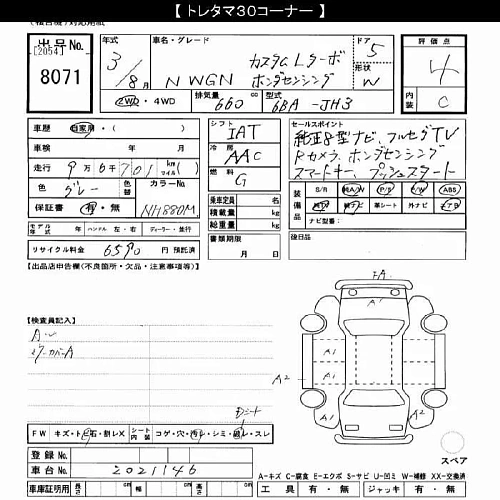 【トレタマ30コーナー】
出品No.
[2054]
8071
年式
3/8月
車名・グレード
N WGN
カスタムLターボ
ホンダセンシング
ドア
5
形状
W
評価点
4
内装
C
2WD・4WD
排気量
660 cc
型式
6BA-JH3
車歴
自家用・( )
車検 年 月
走行 9万6千701 km(マイル)
色 グレー
色替
カラーNo.
NH880M
保証書 有・無
シフト
IAT
冷房
AAC
燃料
G
乗車定員 名
積載量 kg
総重量 kg
書類期限
月 日
セールスポイント
純正8型ナビ、フルセグTV
Rカメラ、ホンダセンシング
スマートキー、プッシュスタート
装備品
S/R A/W P/S P/W ABS
純ナビ 革シート 外ナビ エアB
ナビ型番
後日品
モデル年式 年 ハンドル 左・右 ディーラー・並行
リサイクル料金 6590 円 預託済
【出品店申告欄(不良箇所・欠品・注意事項等)】
【検査員記入】
FA
A1
A1
A2
A1
A2
Dシート
FW キズ・ト石・割レX
シート内装
コゲ・穴・汚レ・シミ・破レ・スレ
スペア
登録No.
車台No. 2021146
車庫証明用 長さ cm 幅 cm 高さ cm
A-キズ C-腐食 E-エクボ S-サビ U-凹ミ W-補修 XX-交換済
工具 有・無 ジャッキ 有・無